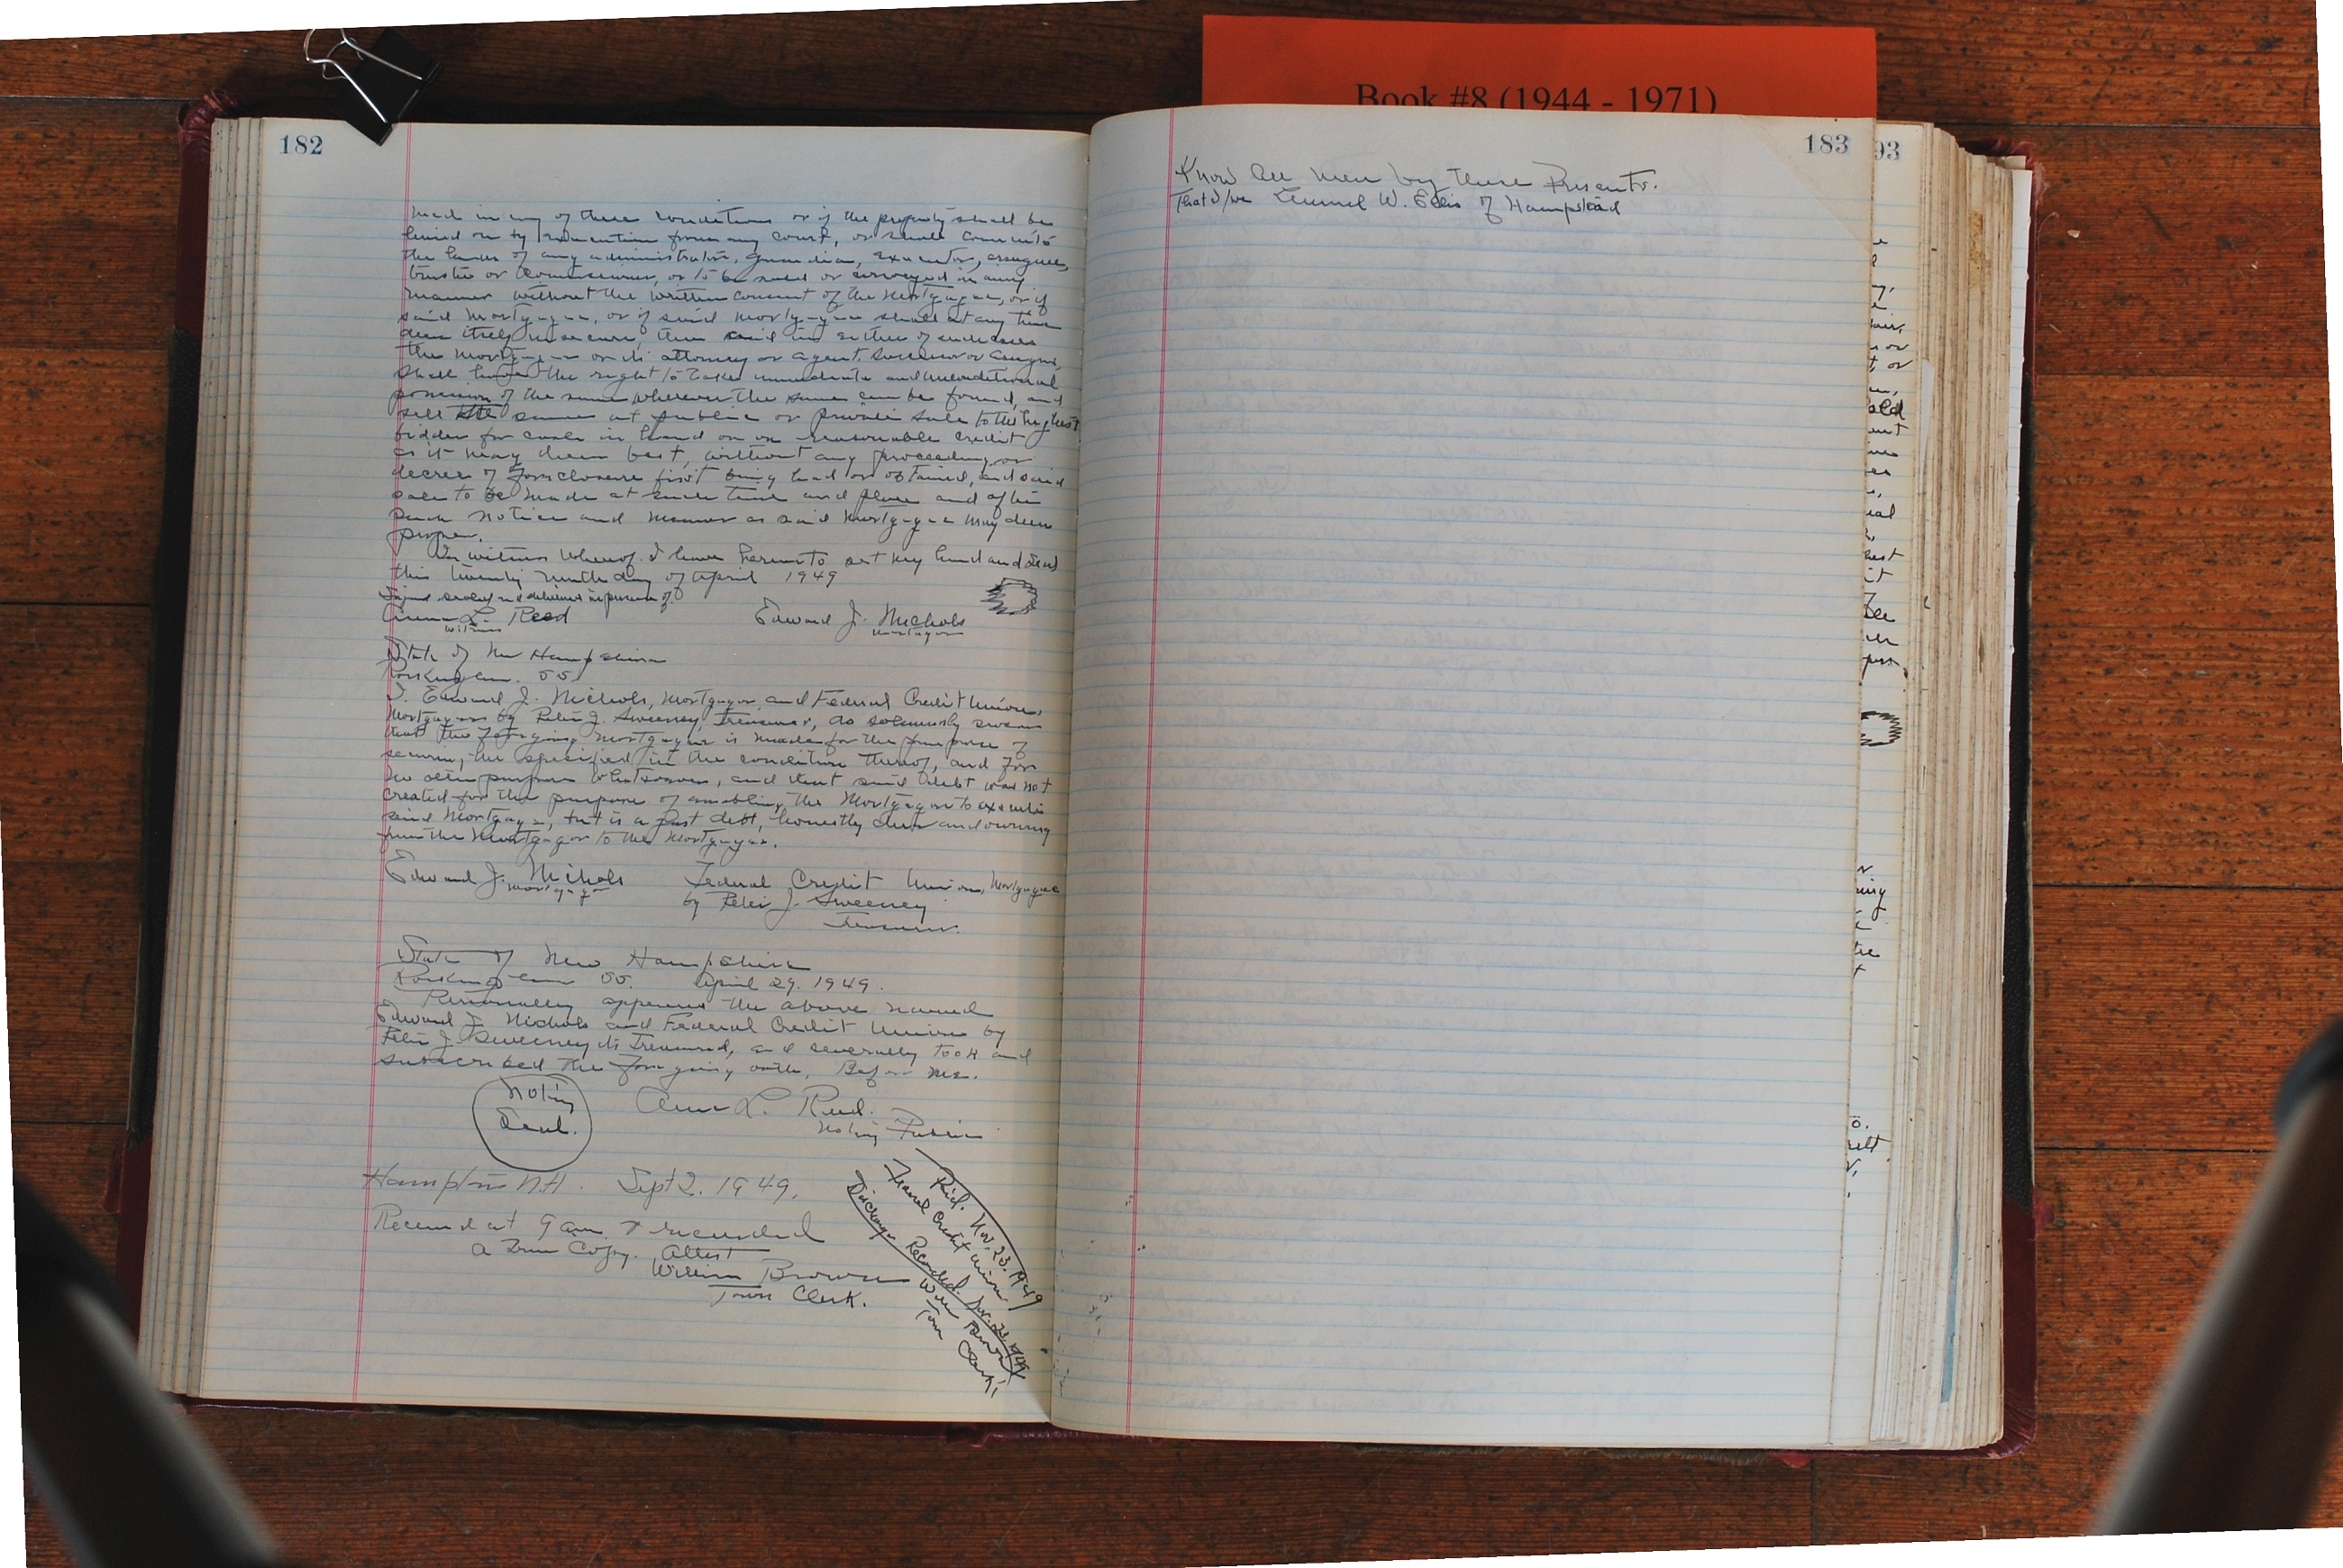 Book #8 (1944 - 1971)
182
made in any of these conditions or if the property shall be
levied on by execution from any court, or shall come into
the hands of any administrator, guardian, executor, assignee,
trustee or Commissioner, or to be sold or conveyed in any
manner without the written consent of the Mortgagee, or if
said Mortgagee, or if said Mortgagee shall at any time
deem itself insecure, then and in either of such cases
the Mortgagee or its attorney or agent, successor or assigns,
shall have the right to take immediate and unconditional
possession of the same wherever the same can be found, and
sell the same at public or private sale to the highest
bidder for cash in hand or on reasonable credit
as it may deem best, without any proceeding or
decree of foreclosure first being had or obtained, and said
sale to be made at such time and place and after
such notice and manner as said Mortgagee may deem
proper.
In witness whereof I have hereunto set my hand and seal
this twenty ninth day of April 1949
Signed sealed and delivered in presence of
Anna L. Reed
witness
Edward J. Nichols
Mortgagor
State of New Hampshire
Rockingham. SS.
I. Edward J. Nichols, Mortgagor, and Federal Credit Union,
Mortgagee by Peter J. Sweeney, Treasurer, do solemnly swear
that the foregoing Mortgage is made for the purpose of
securing the specified in the condition thereof, and for
no other purpose whatsoever, and that said debt was not
created for the purpose of enabling the Mortgagor to execute
said Mortgage, but is a just debt, honestly due and owing
from the Mortgagor to the Mortgagee.
Edward J. Nichols
Mortgagor
Federal Credit Union, Mortgagee
by Peter J. Sweeney
Treasurer.
State of New Hampshire
Rockingham SS. April 29. 1949.
Personally appeared the above named
Edward J. Nichols and Federal Credit Union by
Peter J. Sweeney its Treasurer, and severally took and
subscribed the foregoing oath, Before me.
Notary
Seal.
Anna L. Reed.
Notary Public
Hampton N.H. Sept 2. 1949.
Received at 9 am & recorded
a True Copy. Attest
William Brown
Town Clerk.
Pd. Nov. 23. 1949
Federal Credit Union
Discharge Recorded. Nov. 23. 1949
Wm Brown
Town Clerk
183
Know All Men by these Presents.
That I/we Lemuel W. Ellis of Hampstead
93